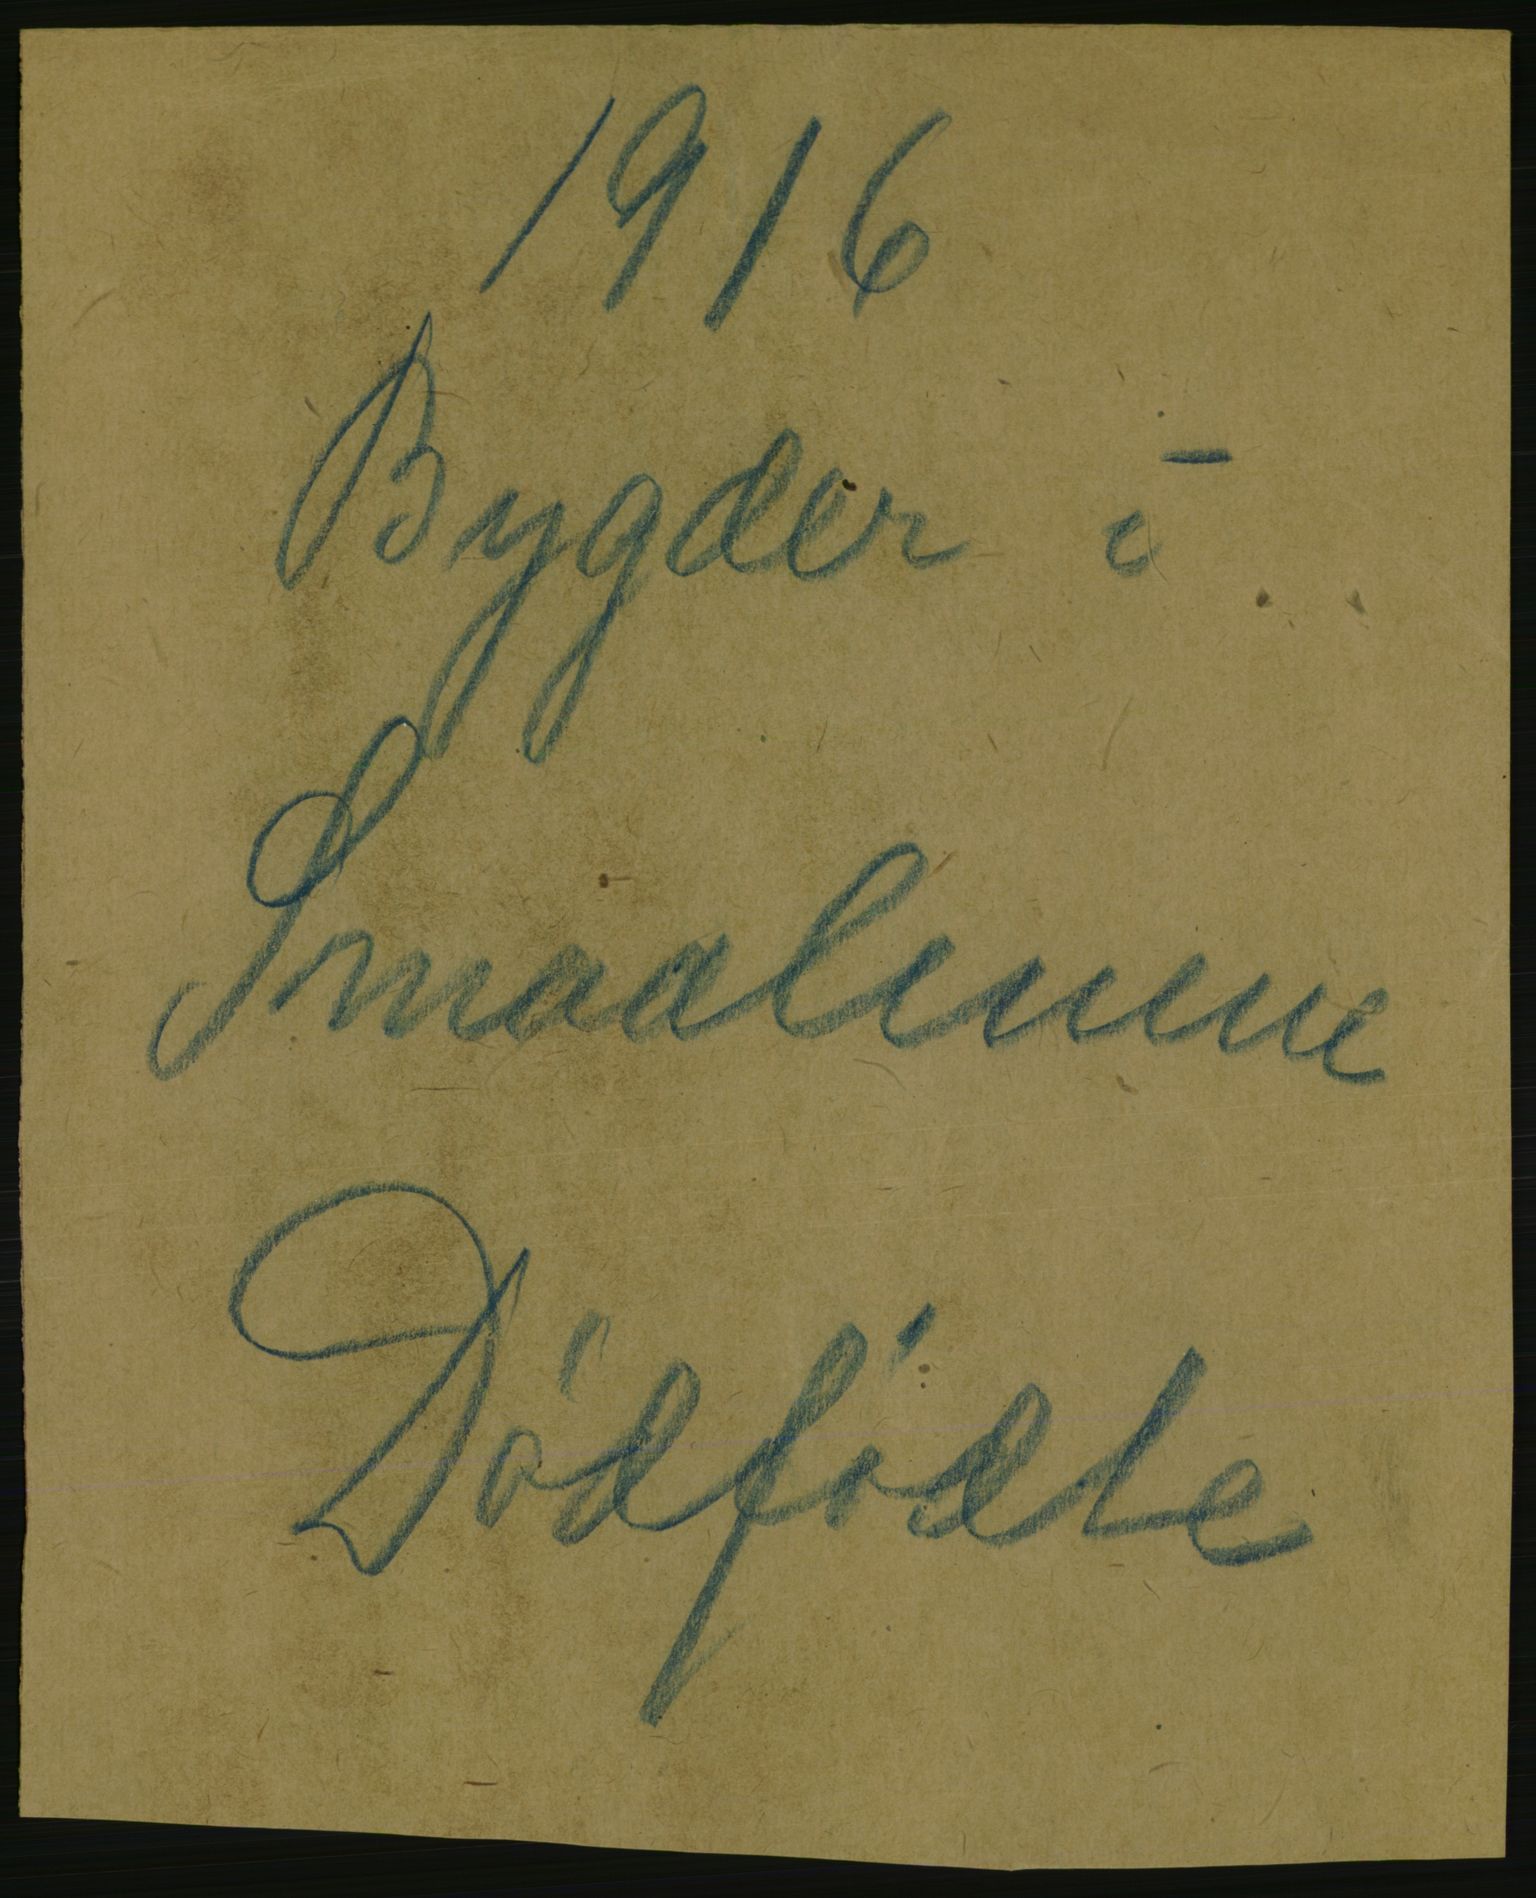 1916
Bygder i
Smaalenene
Dödfödte